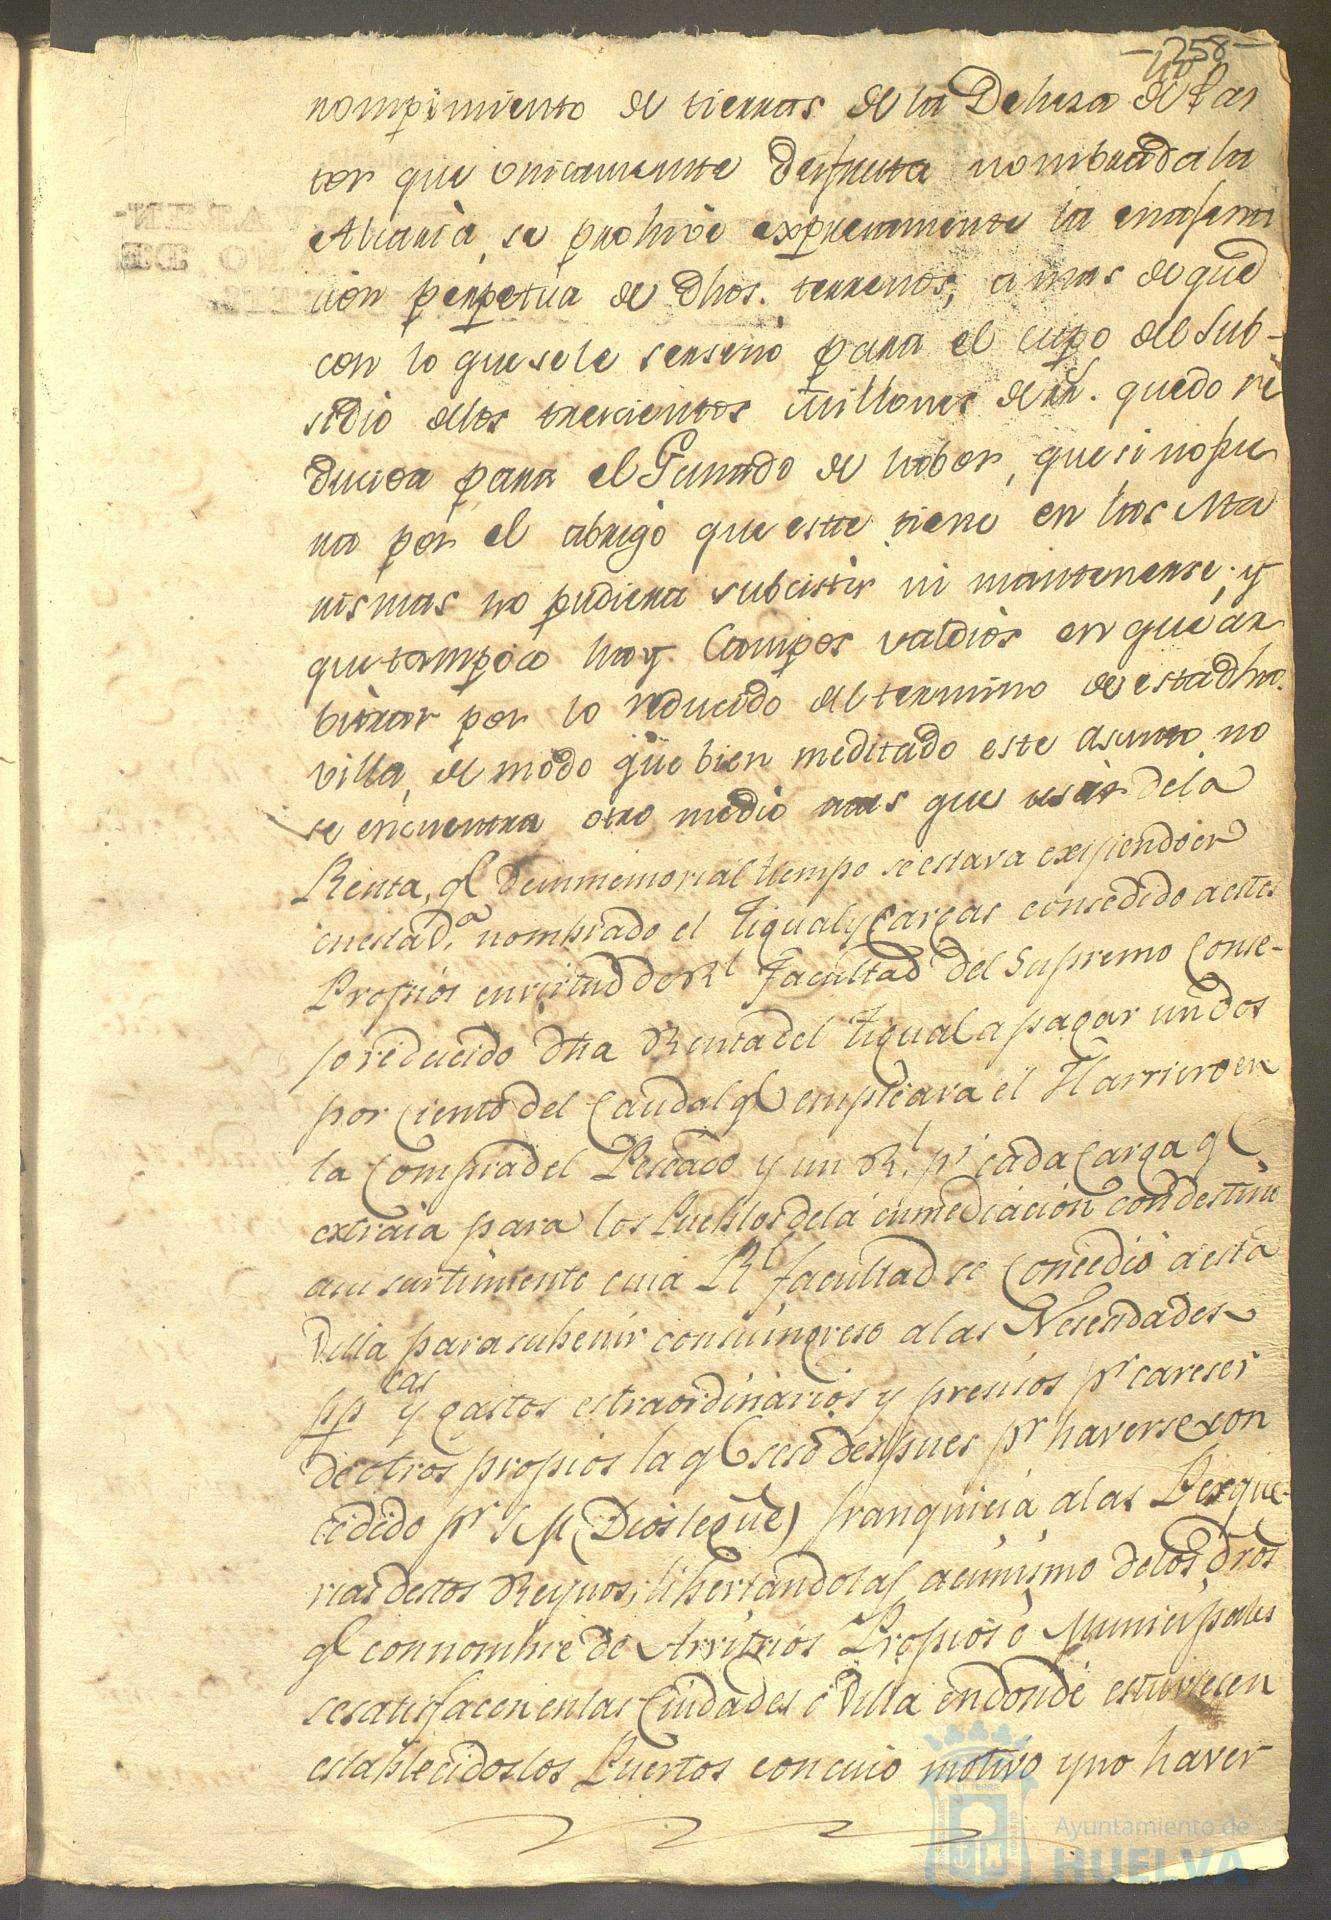 -258-
rompimiento de tierras de la Dehesa de Pas
tor que unicamente disfruta nombrada la
Alcaria, se prohive expresamente la enagena
cion perpetua de dhos. terrenos, a mas de que
con lo que se le senseno para el cupo del Sub-
sidio de los trescientos millones de rr. quedo re
ducida para el Ganado de labor, que si no fue
ra por el abrigo que este tiene en las Ma
rismas no pudiera subcistir ni mantenerse; y
que tampoco hay Campos valdios en que ar
bitrar por lo reducido del termino de esta dha.
villa, de modo que bien meditado este asunto no
se encuentra otro medio mas que usar de la
Renta, qe de inmemorial tiempo se estava exijiendo en
en esta Va. nombrado el Tigual y Cargas consedido a estos
Propios en virtud de Rl Facultad del Supremo Conse-
jo reducido dha Renta del Tigual a pagar un dos
por ciento del Caudal qe empleara el Harriero en
la Compra del Pescado y un Rl. pr cada Carga qe
extraia para los Pueblos de la inmediacion con destino
a su surtimiento cuia Rl facultad se Concedio a esta
Villa para subenir con su ingreso a las Nesesidades
ppcas y gastos estraordinarios y presisos pr careser
de otros propios la qe seso despues pr haverse con
cedido pr S. M. (Dios le gue) franquicia a las Pesque-
rias destos Reynos, libertandolas acimismo de los dros
qe con nombre de Arvitrios Propios o Municipales
se satisfacen en las Ciudades o Villa en donde estuviesen
establecidos los Puertos con cuio motivo y no haver
Ayuntamiento de
HUELVA